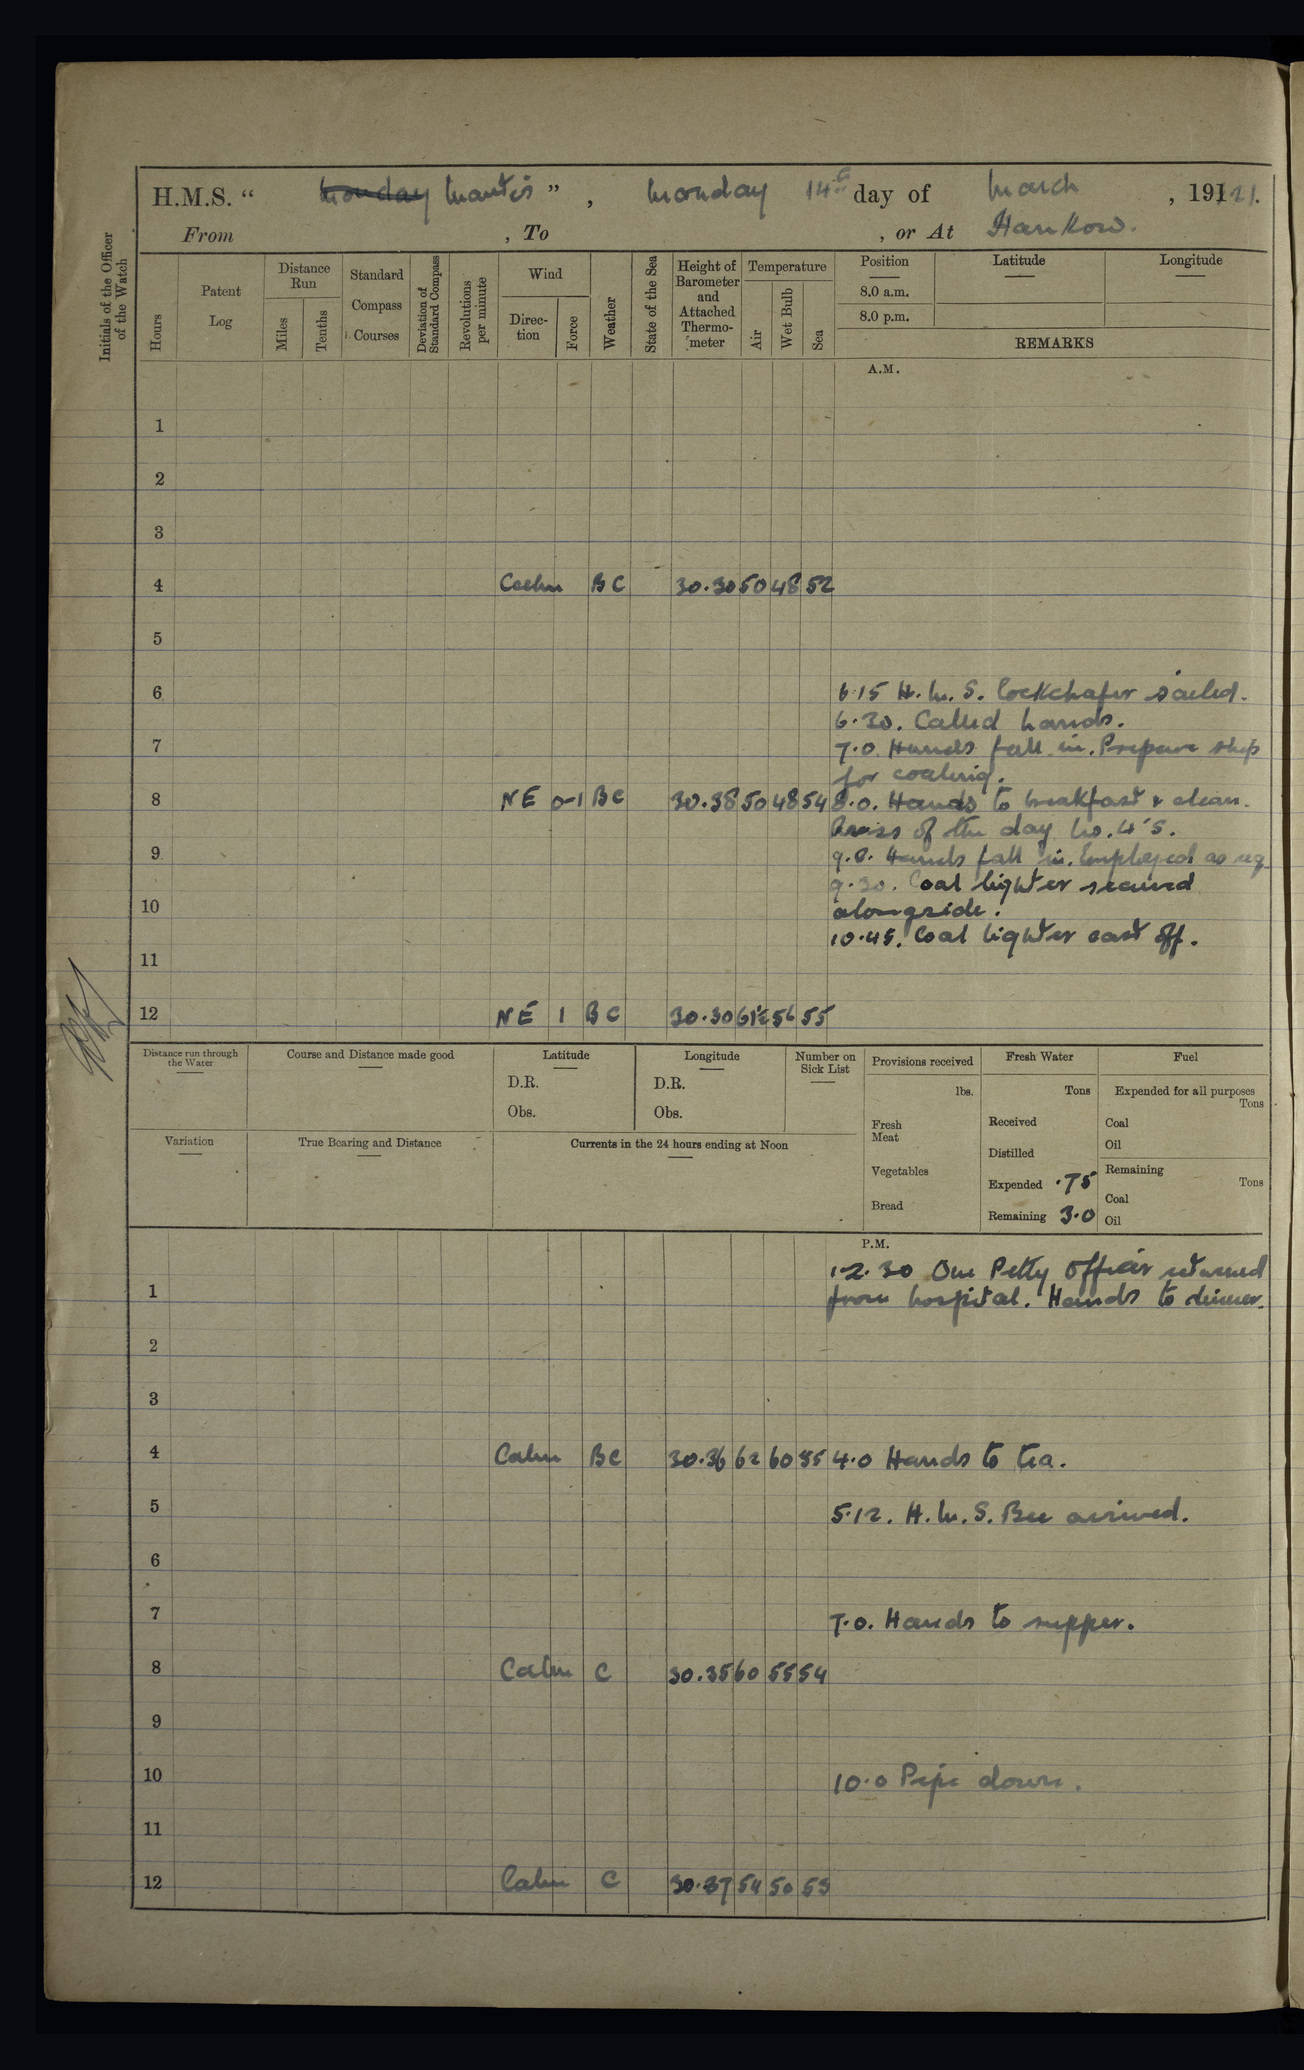 H.M.S. “ Monday Mantis ” , Monday 14th day of March , 191 1921.
From , To , or At Hankow.
Initials of the Officer of the Watch
Hours
Patent Log
Distance Run
Miles
Tenths
Standard Compass Courses
Deviation of Standard Compass
Revolutions per minute
Wind
Direc-tion
Force
Weather
State of the Sea
Height of Barometer and Attached Thermo-meter
Temperature
Air
Wet Bulb
Sea
Position
8.0 a.m.
8.0 p.m.
Latitude
Longitude
REMARKS
A.M.
1
2
3
4 Calm BC 30.30 50 48 52
5
6 6.15 H.M.S. Cockchafer sailed.
6.30. Called hands.
7 7.0. Hands fall in. Prepare ship
for coaling.
8 NE 0-1 BC 30.38 50 48 54 8.0. Hands to breakfast & clean.
Dress of the day No. 4's.
9 9.0. Hands fall in. Employed as req
9.30. Coal lighter secured
10 alongside.
10.45. Coal lighter cast off.
11
12 NE 1 BC 30.30 61½ 56 55
Distance run through the Water
Course and Distance made good
Latitude
D.R.
Obs.
Longitude
D.R.
Obs.
Number on Sick List
Provisions received
lbs.
Fresh Meat
Vegetables
Bread
Fresh Water
Tons
Received
Distilled
Expended .75
Remaining 3.0
Fuel
Expended for all purposes
Tons
Coal
Oil
Remaining
Tons
Coal
Oil
Variation
True Bearing and Distance
Currents in the 24 hours ending at Noon
P.M.
12.30 One Petty Officer returned
1 from hospital. Hands to dinner.
2
3
4 Calm BC 30.36 62 60 55 4.0 Hands to tea.
5 5.12. H.M.S. Bee arrived.
6
7 7.0. Hands to supper.
8 Calm C 30.35 60 55 54
9
10 10.0 Pipe down.
11
12 Calm C 30.37 54 50 53